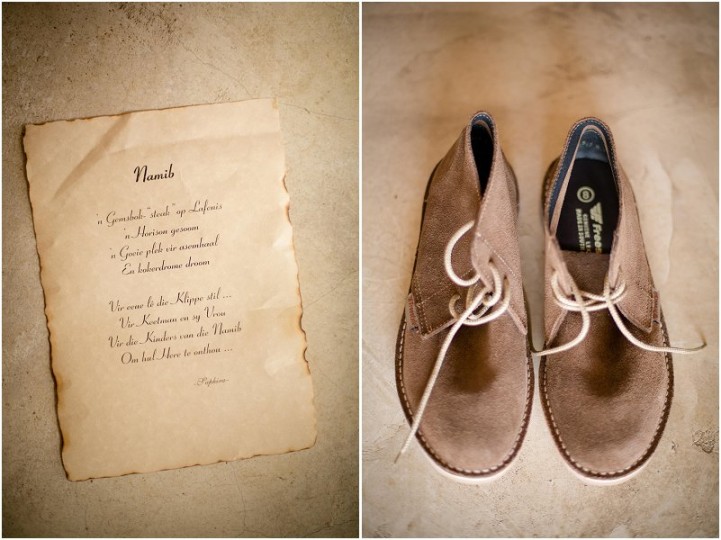 Namib
'n Gemsbok-"steak" op Lafenis
'n Horison gesoum
'n Goeie plek vir asemhaal
En kokerdrome droom
Vir eeue lê die Klippe stil ...
Vir Koetman en sy Vrou
Vir die Kinders van die Namib
Om hul Here te onthou ...
8
Free
GENUINE